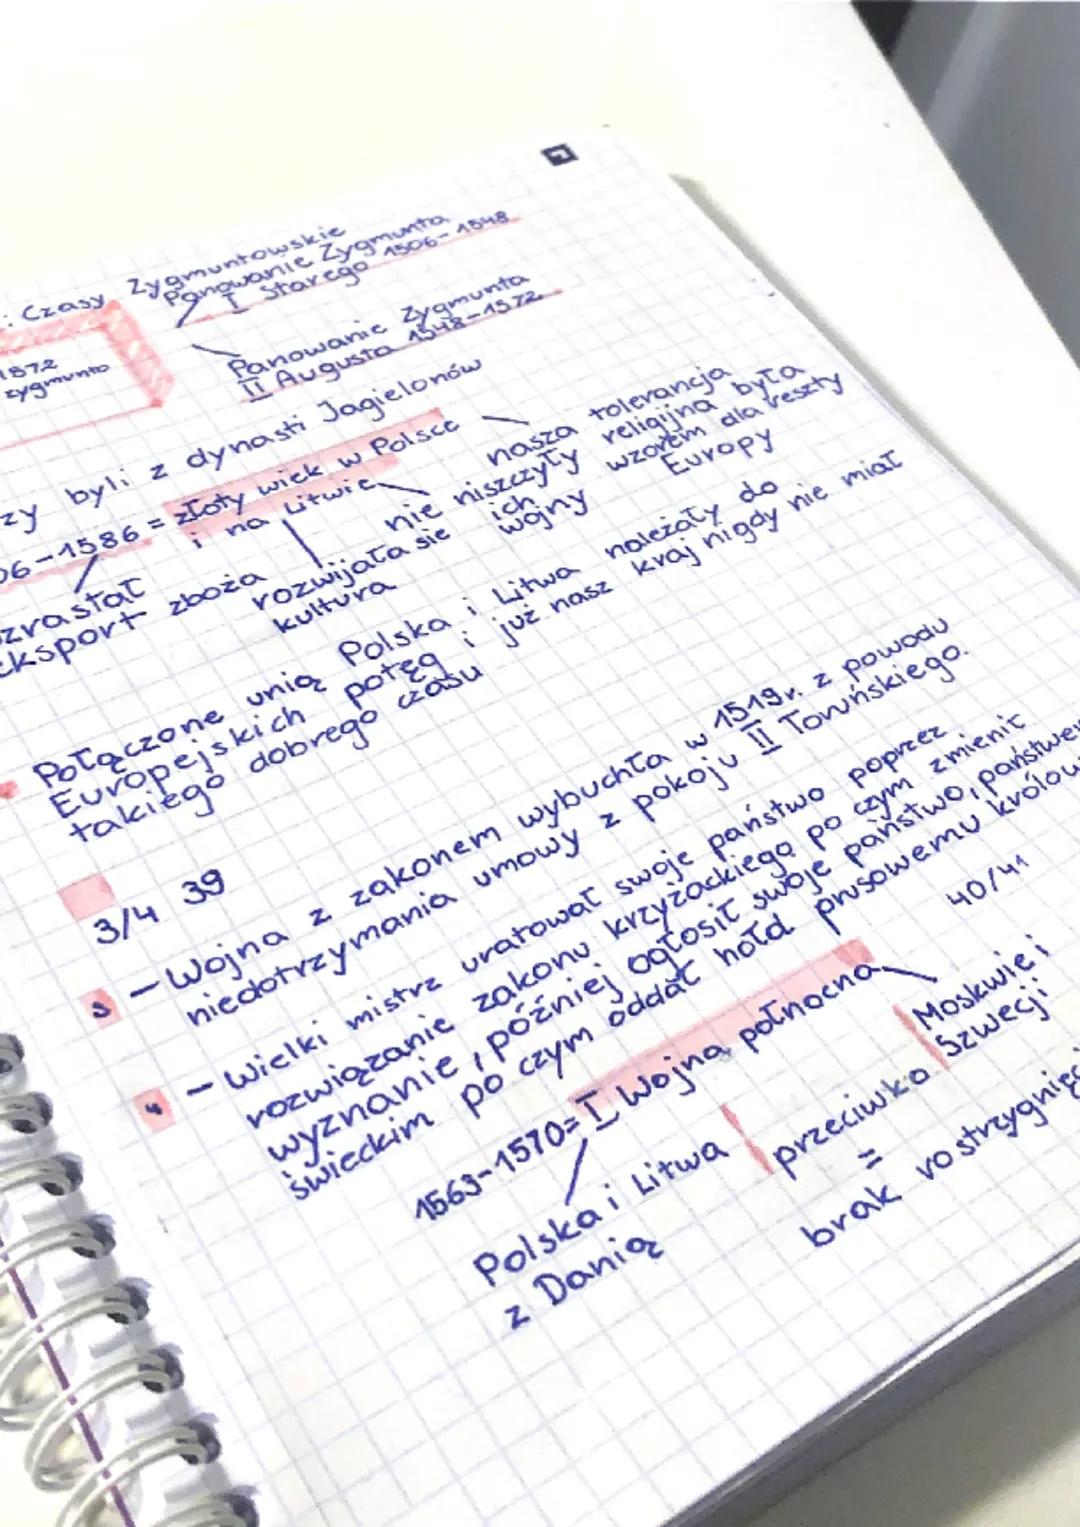 : Czasy Zygmuntowskie
Panowanie Zygmunta
I Starego 1506-1548
1572
zygmunto
Panowanie Zygmunta
II Augusta 1548-1572
zy byli z dynasti Jagielonów
06-1586 = złoty wiek w Polsce
i na Litwie
nasza tolerancja
religijna była
wzorem dla reszty
Europy
nie niszczyły
ich
wojny
zrastał
eksport zboża
rozwijała sie
kultura
Połączone unią Polska i Litwa należały do
Europejskich potęg i już nasz kraj nigdy nie miał
takiego dobrego czasu
3/4 39
3 - Wojna z zakonem wybuchła w 1519r. z powodu
niedotrzymania umowy z pokoju II Toruńskiego.
4 - Wielki mistrz uratował swoje państwo poprzez
rozwiązanie zakonu krzyżackiego po czym zmienił
wyznanie, później ogłosił swoje państwo, państwe
świeckim po czym oddał hołd prusowemu królow
40/41
1563-1570= I Wojna północna
Polska i Litwa
z Danią
przeciwko
Moskwie i
Szwecji
=
brak rostrzygnięc